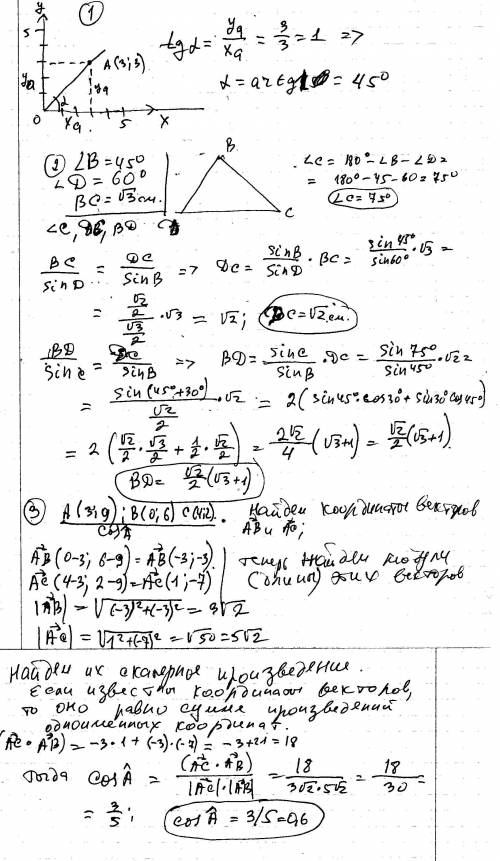 1
y
5
A(3;3)
yа
yа
α
0 xа 5 x
tg α = yа/xа = 3/3 = 1 =>
α = arctg 1 = 45°
2 ∠B = 45°
∠D = 60°
BC = √3 см.
∠C, DC, BD
B
C
∠C = 180° - ∠B - ∠D =
= 180° - 45 - 60 = 75°
∠C = 75°
BC/sin D = DC/sin B => DC = sin B/sin D · BC = sin 45°/sin 60° · √3 =
= (√2/2)/(√3/2) · √3 = √2; DC = √2 см.
BD/sin C = DC/sin B => BD = sin C/sin B · DC = sin 75°/sin 45° · √2 =
= sin(45°+30°)/(√2/2) · √2 = 2(sin45°·cos30°+sin30°cos45°)
= 2(√2/2 · √3/2 + 1/2 · √2/2) = 2√2/4 (√3+1) = √2/2 (√3+1)
BD = √2/2 (√3+1)
3 A(3;9); B(0;6) C(4;2).
cos Â
Найдем координаты векторов
AB и AC;
AB(0-3; 6-9) = AB(-3;-3)
AC(4-3; 2-9) = AC(1;-7)
теперь найдем модули
(длины) этих векторов
|AB| = √((-3)²+(-3)²) = 3√2
|AC| = √(1²+(-7)²) = √50 = 5√2
Найдем их скалярное произведение.
Если известны координаты векторов,
то оно равно сумме произведений
одноименных координат.
(AC · AB) = -3·1 + (-3)·(-7) = -3+21 = 18
тогда cos Â = (AC · AB)/(|AC|·|AB|) = 18/(3√2·5√2) = 18/30 =
= 3/5; cos Â = 3/5 = 0,6